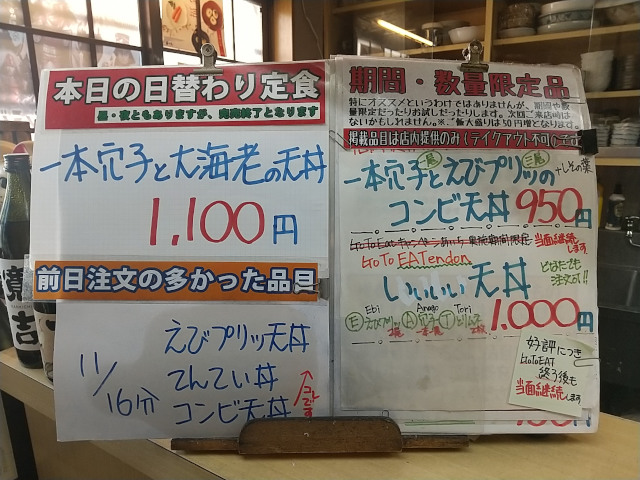 本日の日替わり定食
昼・夜ともありますが、完売終了となります
一本穴子と大海老の天丼
1,100円
前日注文の多かった品目
11/16分
えびプリッ天丼
てんてい丼
コンビ天丼
←コレです
期間・数量限定品
特にオススメというわけではありませんが、期間や数
量限定だったりお試しだったりします。次回ご来店時は
ないかもしれません。※ご飯大盛りは50円増となります。
掲載品目は店内提供のみ(テイクアウト不可)
一本穴子とえびプリッの
二尾
+しその葉
コンビ天丼 950円
GoToEatキャンペーンあやかり実施期間限定
当面継続します
GoTo EATendon
いいいい天丼
どなたでも
注文可!!
1,000円
Ebi
Anago
Tori
Ⓔえびプリッ Ⓐ穴子 Ⓣとり天
2尾
2枚
好評につき
GoToEAT
終了後も
当面継続します